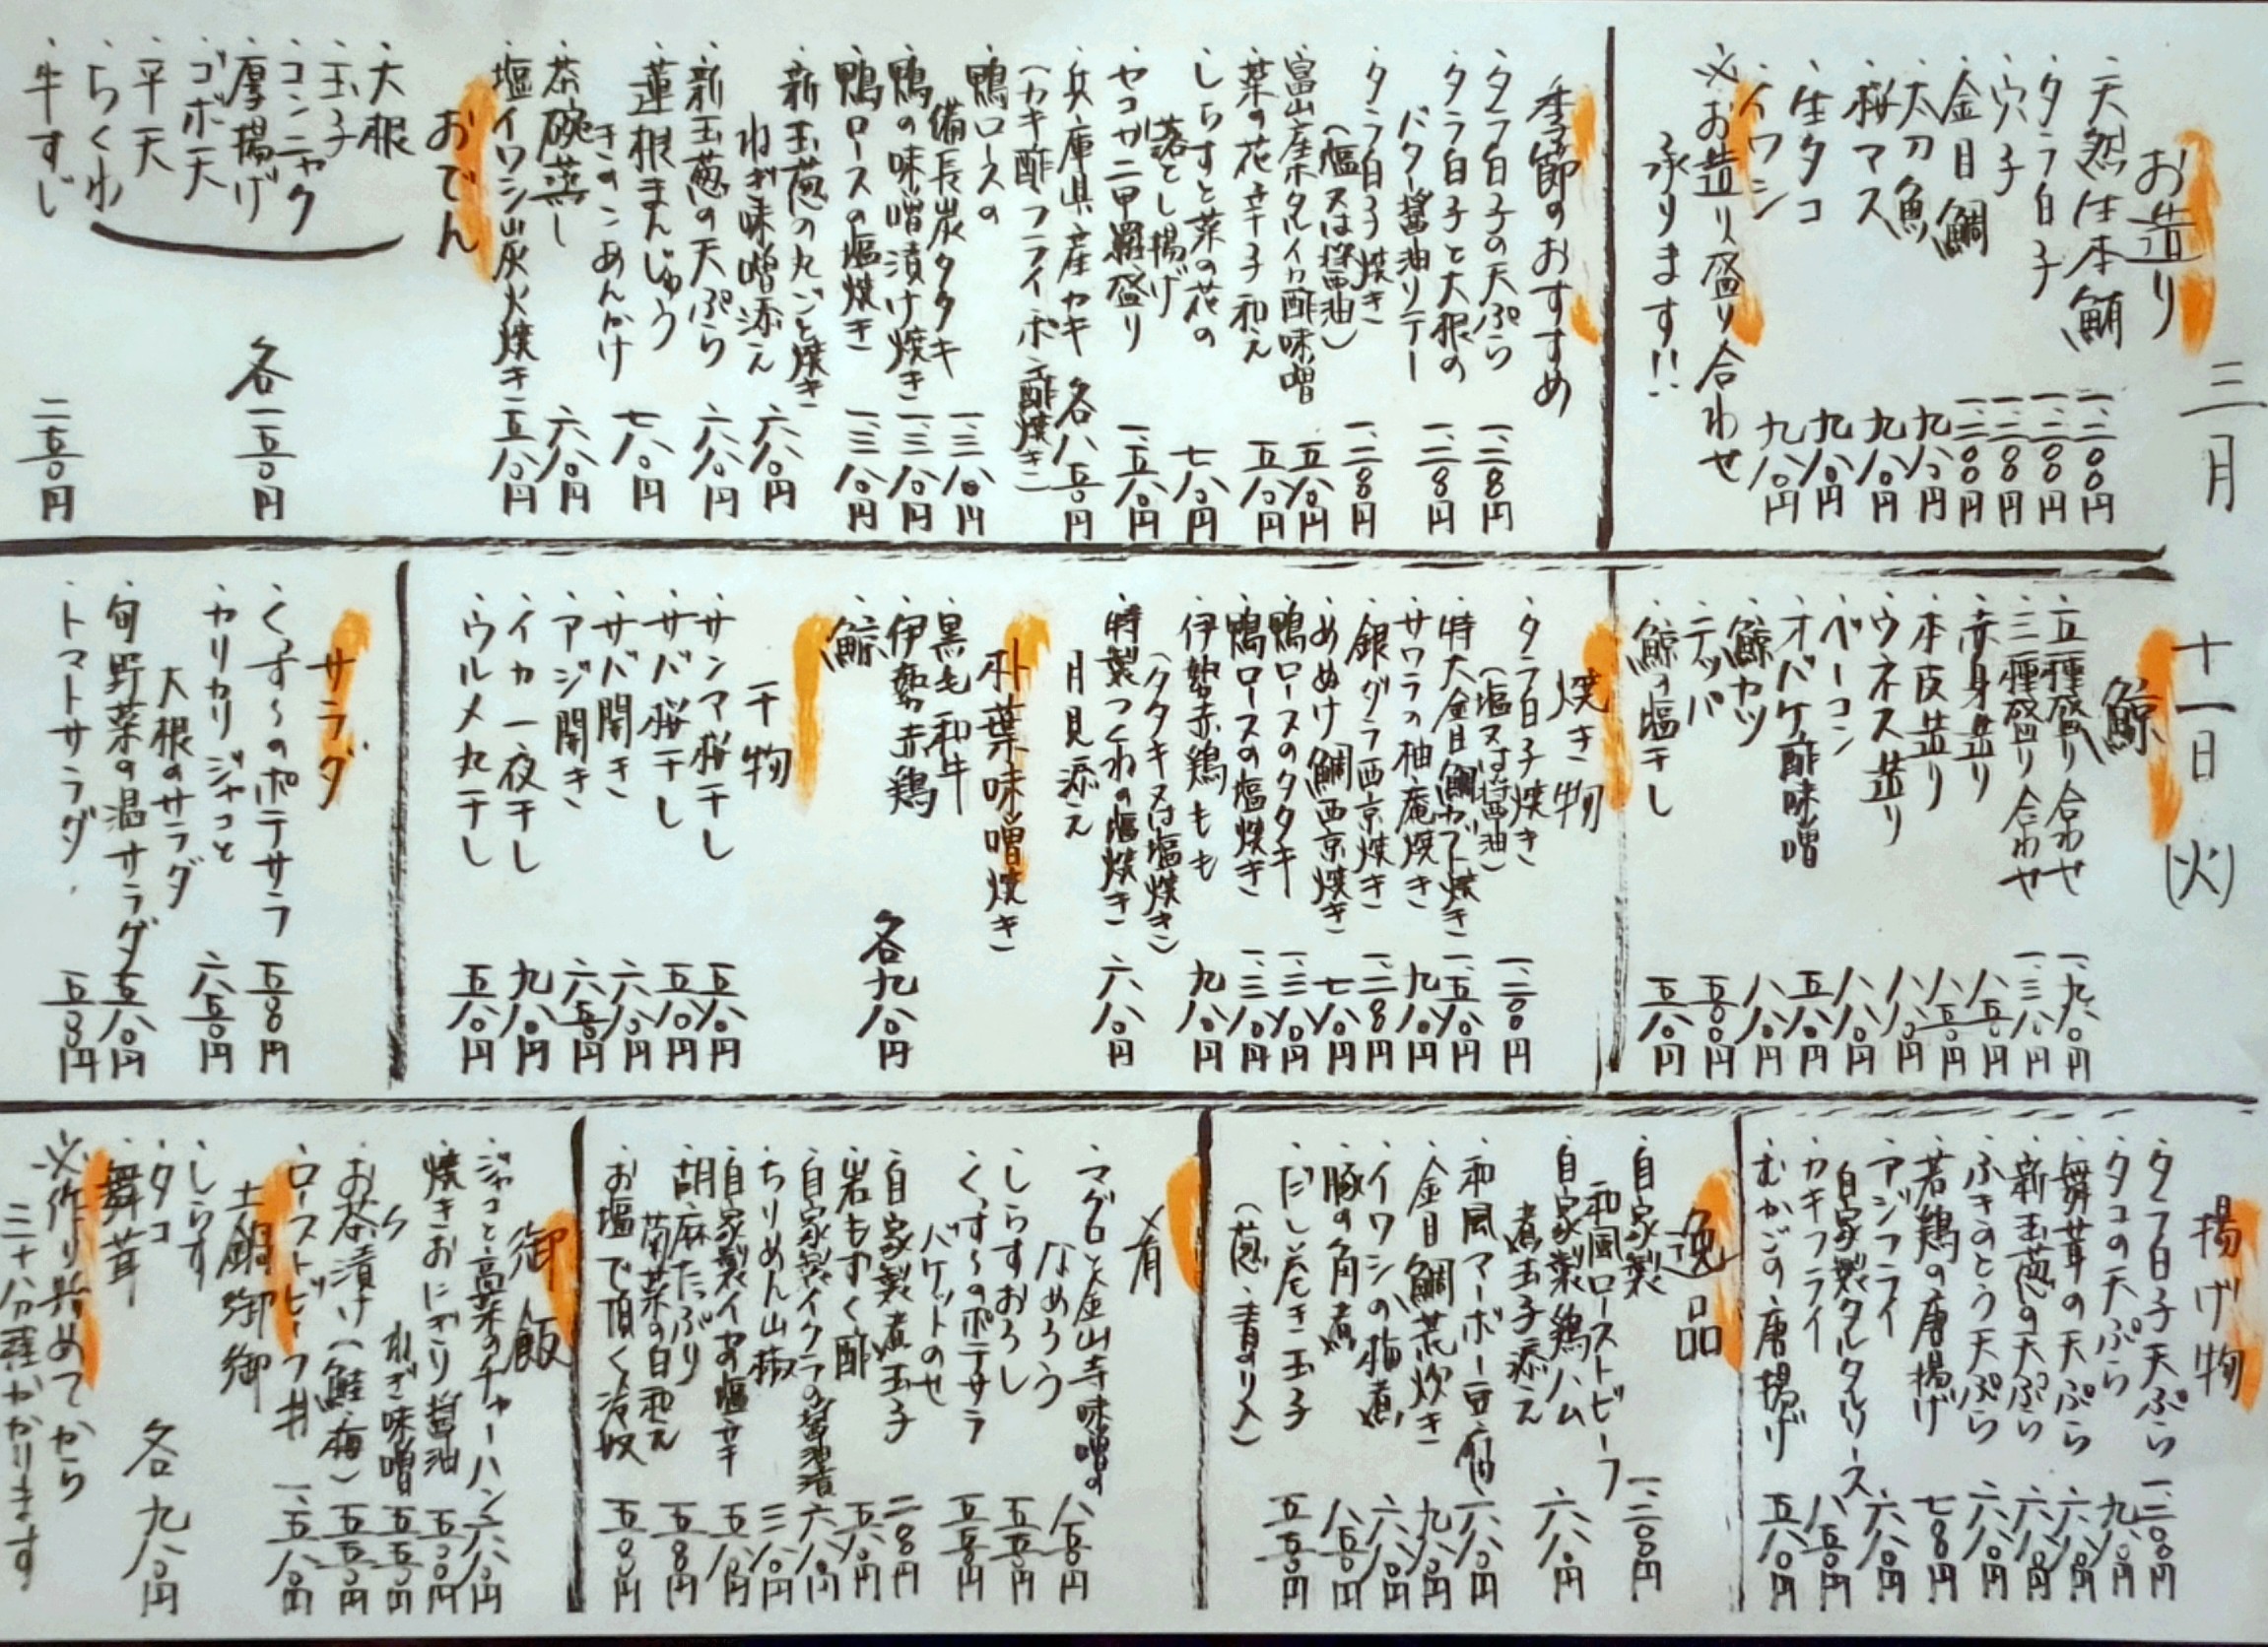 三月 十一日 (火)
お造り
・天然生本鮪 一、二〇〇円
・タラ白子 一、二〇〇円
・穴子 一、二〇〇円
・金目鯛 一、二〇〇円
・太刀魚 九八〇円
・桜マス 九八〇円
・生タコ 九八〇円
・イワシ 九八〇円
※お造り盛り合わせ
承ります!!
季節のおすすめ
・タラ白子の天ぷら 一、二〇〇円
・タラ白子と大根の
バター醤油ソテー 一、二〇〇円
・タラ白子焼き
(塩又は醤油) 一、二〇〇円
・富山産ホタルイカ酢味噌 五八〇円
・菜の花辛子和え 五八〇円
・しらすと菜の花の
落とし揚げ 七八〇円
・セコガニ甲羅盛り 一、五八〇円
・兵庫県産カキ 各八五〇円
(カキ酢・フライ・ポン酢焼き)
・鴨ロースの
備長炭タタキ 一、三八〇円
・鴨の味噌漬け焼き 一、三八〇円
・鴨ロースの塩焼き 一、三八〇円
・新玉葱の丸ごと焼き
ねぎ味噌添え 六八〇円
・新玉葱の天ぷら 六八〇円
・蓮根まんじゅう
きのこあんかけ 七八〇円
・茶碗蒸し 六八〇円
・塩イワシ炭火焼き 五八〇円
おでん
・大根
・玉子
・コンニャク
・厚揚げ
・ゴボ天
・平天
・ちくわ
各一五〇円
・牛すじ 二五〇円
鯨
・五種盛り合わせ 一、九八〇円
・三種盛り合わせ 一、三八〇円
・赤身造り 八五〇円
・本皮造り 八五〇円
・ウネス造り 八八〇円
・ベーコン 八八〇円
・オバケ酢味噌 五八〇円
・鯨カツ 八八〇円
・テッパ 五〇〇円
・鯨の塩干し 五八〇円
焼き物
・タラ白子焼き
(塩又は醤油) 一、二〇〇円
・特大金目鯛カブト焼き 一、五八〇円
・サワラの柚庵焼き 九八〇円
・銀ダラ西京焼き 一、二〇〇円
・めぬけ鯛西京焼き 七八〇円
・鴨ロースのタタキ 一、三八〇円
・鴨ロースの塩焼き 一、三八〇円
・伊勢赤鶏もも
(タタキ又は塩焼き) 九八〇円
・特製つくねの塩焼き
月見添え 六八〇円
朴葉味噌焼き
・黒毛和牛
・伊勢赤鶏
・鯨
各九八〇円
干物
・サンマ桜干し 五八〇円
・サバ桜干し 五八〇円
・サバ開き 六八〇円
・アジ開き 六五〇円
・イカ一夜干し 九八〇円
・ウルメ丸干し 五八〇円
サラダ
・くず〜のポテサラ 五五〇円
・カリカリジャコと
大根のサラダ 六五〇円
・旬野菜の温サラダ 五八〇円
・トマトサラダ 五五〇円
揚げ物
・タラ白子天ぷら 一、二〇〇円
・タコの天ぷら 九八〇円
・舞茸の天ぷら 六八〇円
・新玉葱の天ぷら 六八〇円
・ふきのとう天ぷら 六八〇円
・若鶏の唐揚げ 七〇〇円
・アジフライ
自家製タルタルソース 六八〇円
・カキフライ 八五〇円
・むかごの唐揚げ 五八〇円
逸品
・自家製
和風ローストビーフ 一、二〇〇円
・自家製鶏ハム
煮玉子添え 六八〇円
・和風マーボー豆腐 六八〇円
・金目鯛荒炊き 九八〇円
・イワシの梅煮 六八〇円
・豚の角煮 八五〇円
・だし巻き玉子
(葱・青のり入) 五五〇円
肴
・マグロと金山寺味噌の
なめろう 八五〇円
・しらすおろし 五五〇円
・くず〜のポテサラ
バケットのせ 五五〇円
・自家製煮玉子 二〇〇円
・岩もずく酢 五八〇円
・自家製イクラの醤油漬 六八〇円
・ちりめん山椒 三八〇円
・自家製イカの塩辛 五八〇円
・胡麻たっぷり
菊菜の白和え 五五〇円
・お塩で頂く冷奴 五五〇円
御飯
・ジャコと高菜のチャーハン 六八〇円
・焼きおにぎり 醤油 五〇〇円
・〃 ねぎ味噌 五五〇円
・お茶漬け(鮭・梅) 五五〇円
・ローストビーフ丼 一、五八〇円
土鍋御飯
・しらす
・タコ
・舞茸
各九八〇円
※作り始めてから
三十八分程かかります